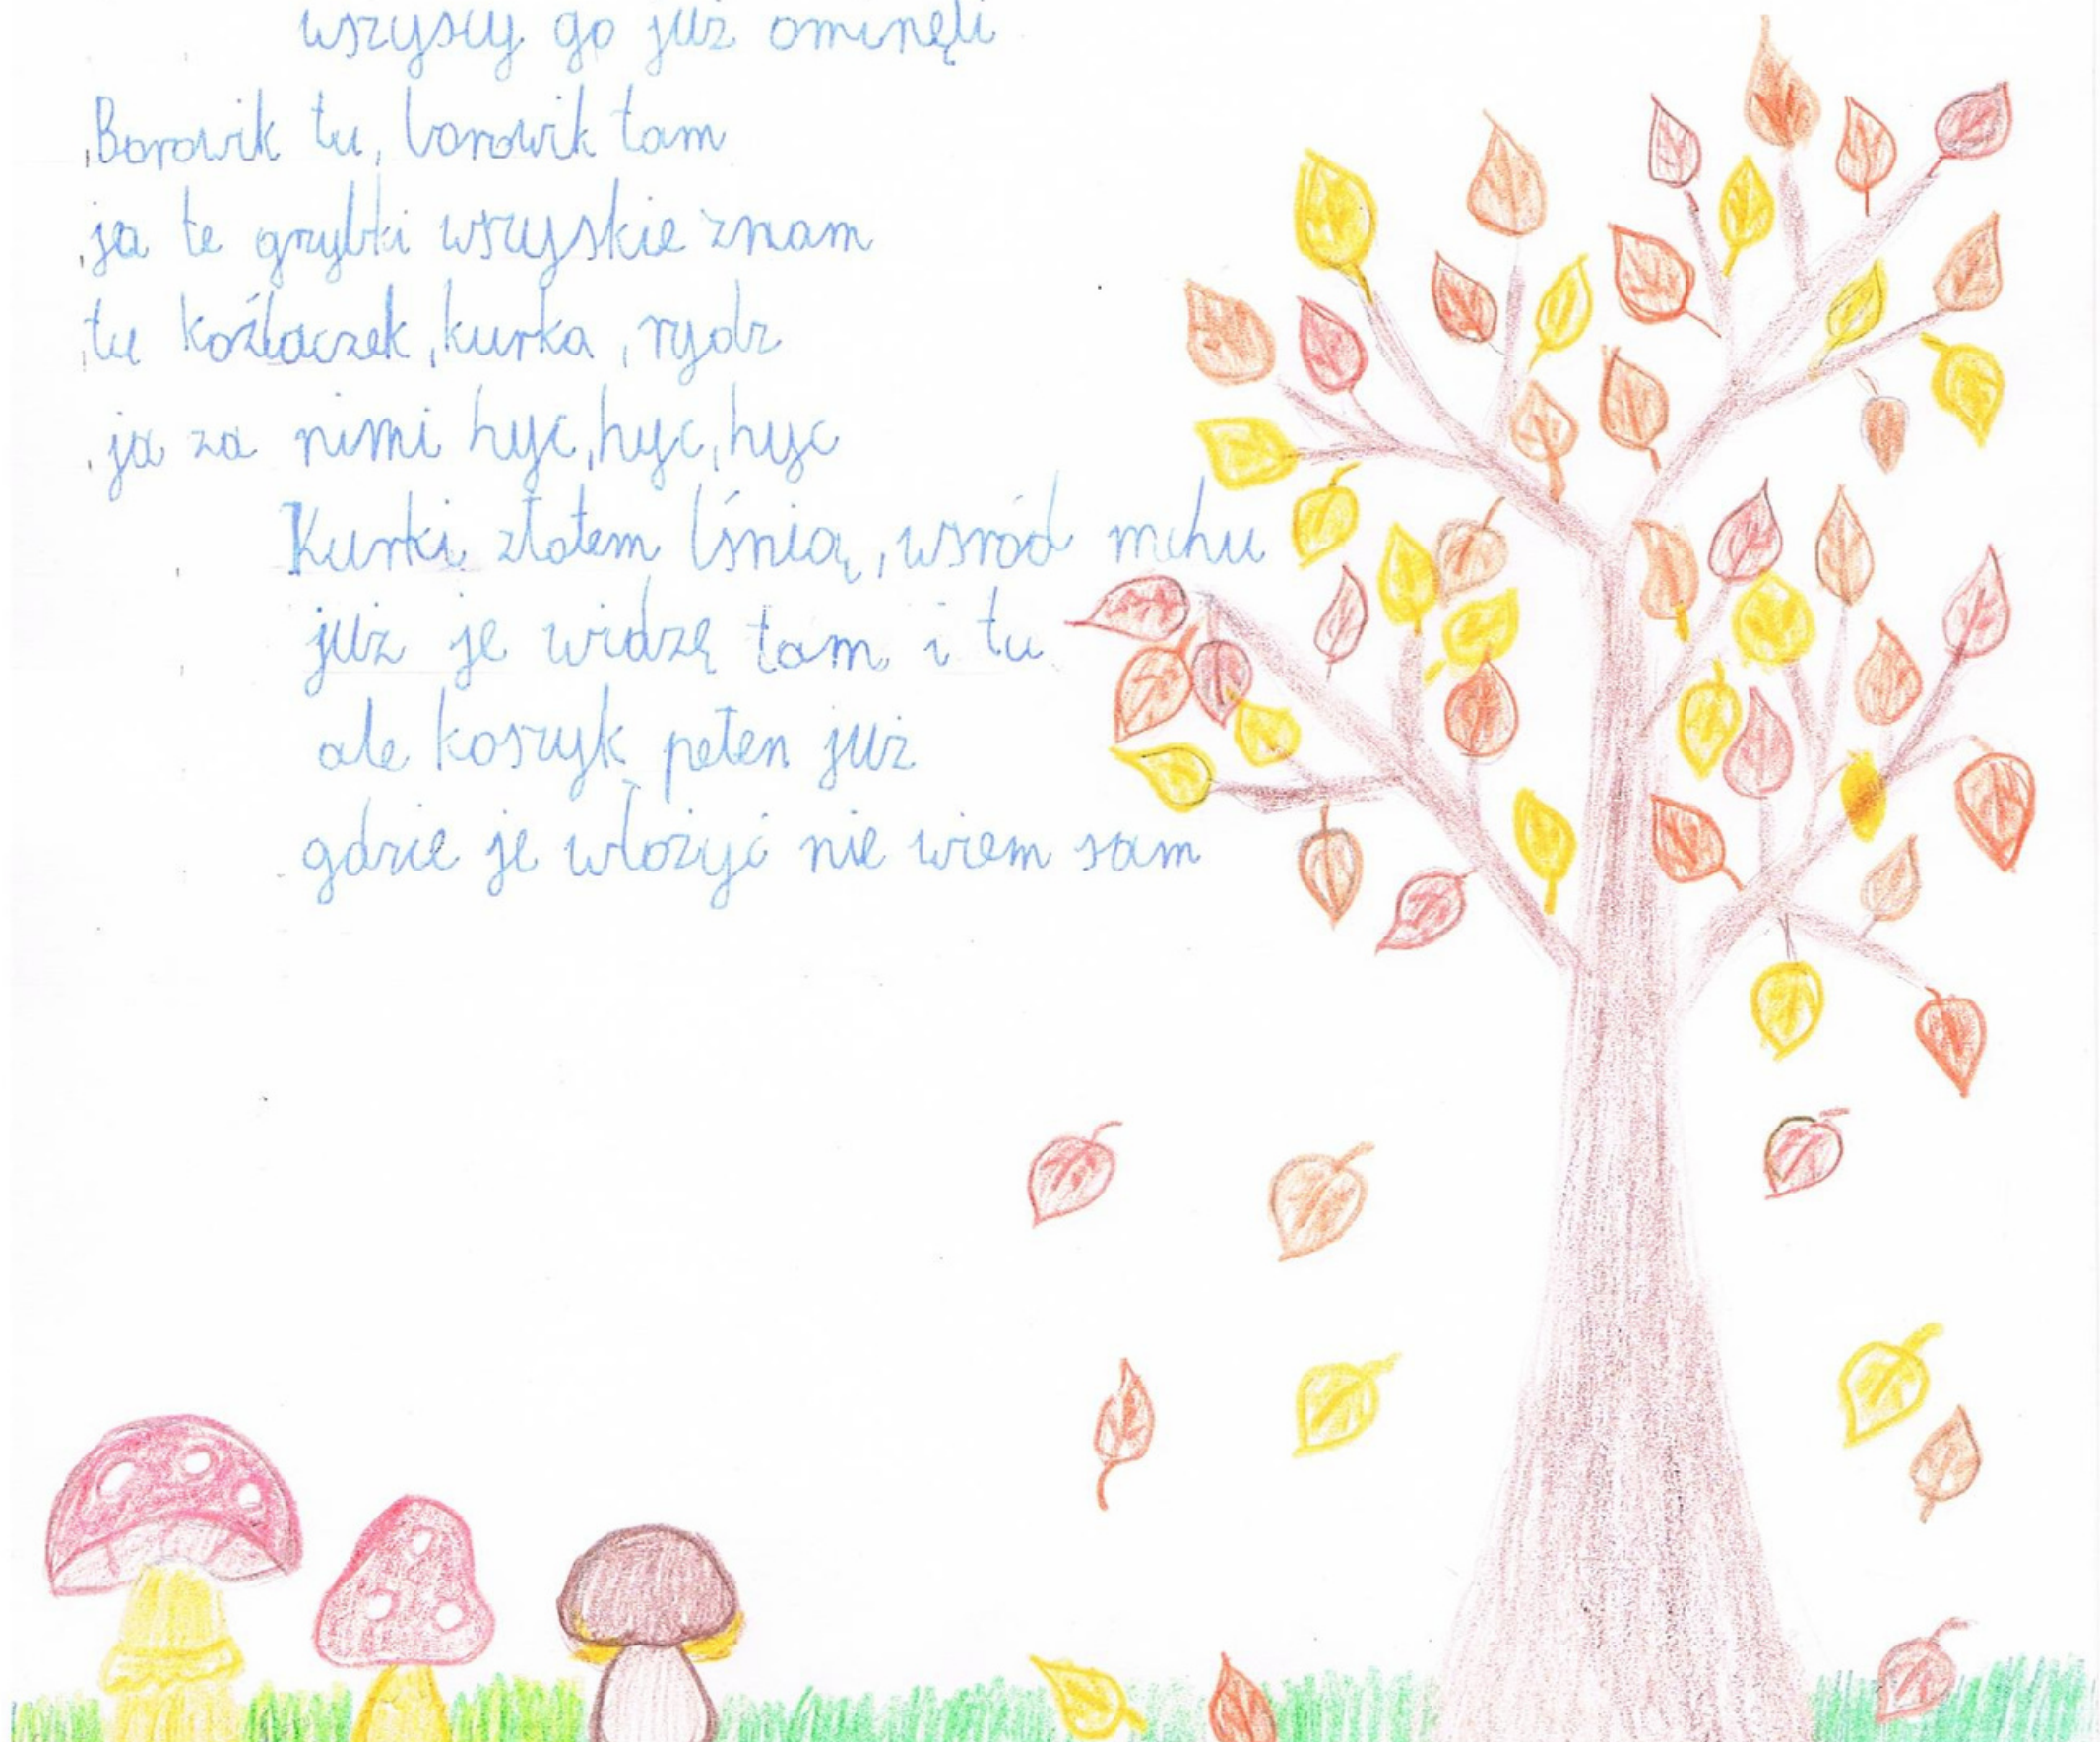 wszyscy go już ominęli
Borowik tu, borowik tam
ja te grzybki wszyskie znam
tu koźlaczek, kurka, rydz
ja za nimi hyc, hyc, hyc
Kurki złotem lśnią, wsród mchu
już je widzę tam i tu
ale koszyk pełen już
gdzie je włożyć nie wiem sam